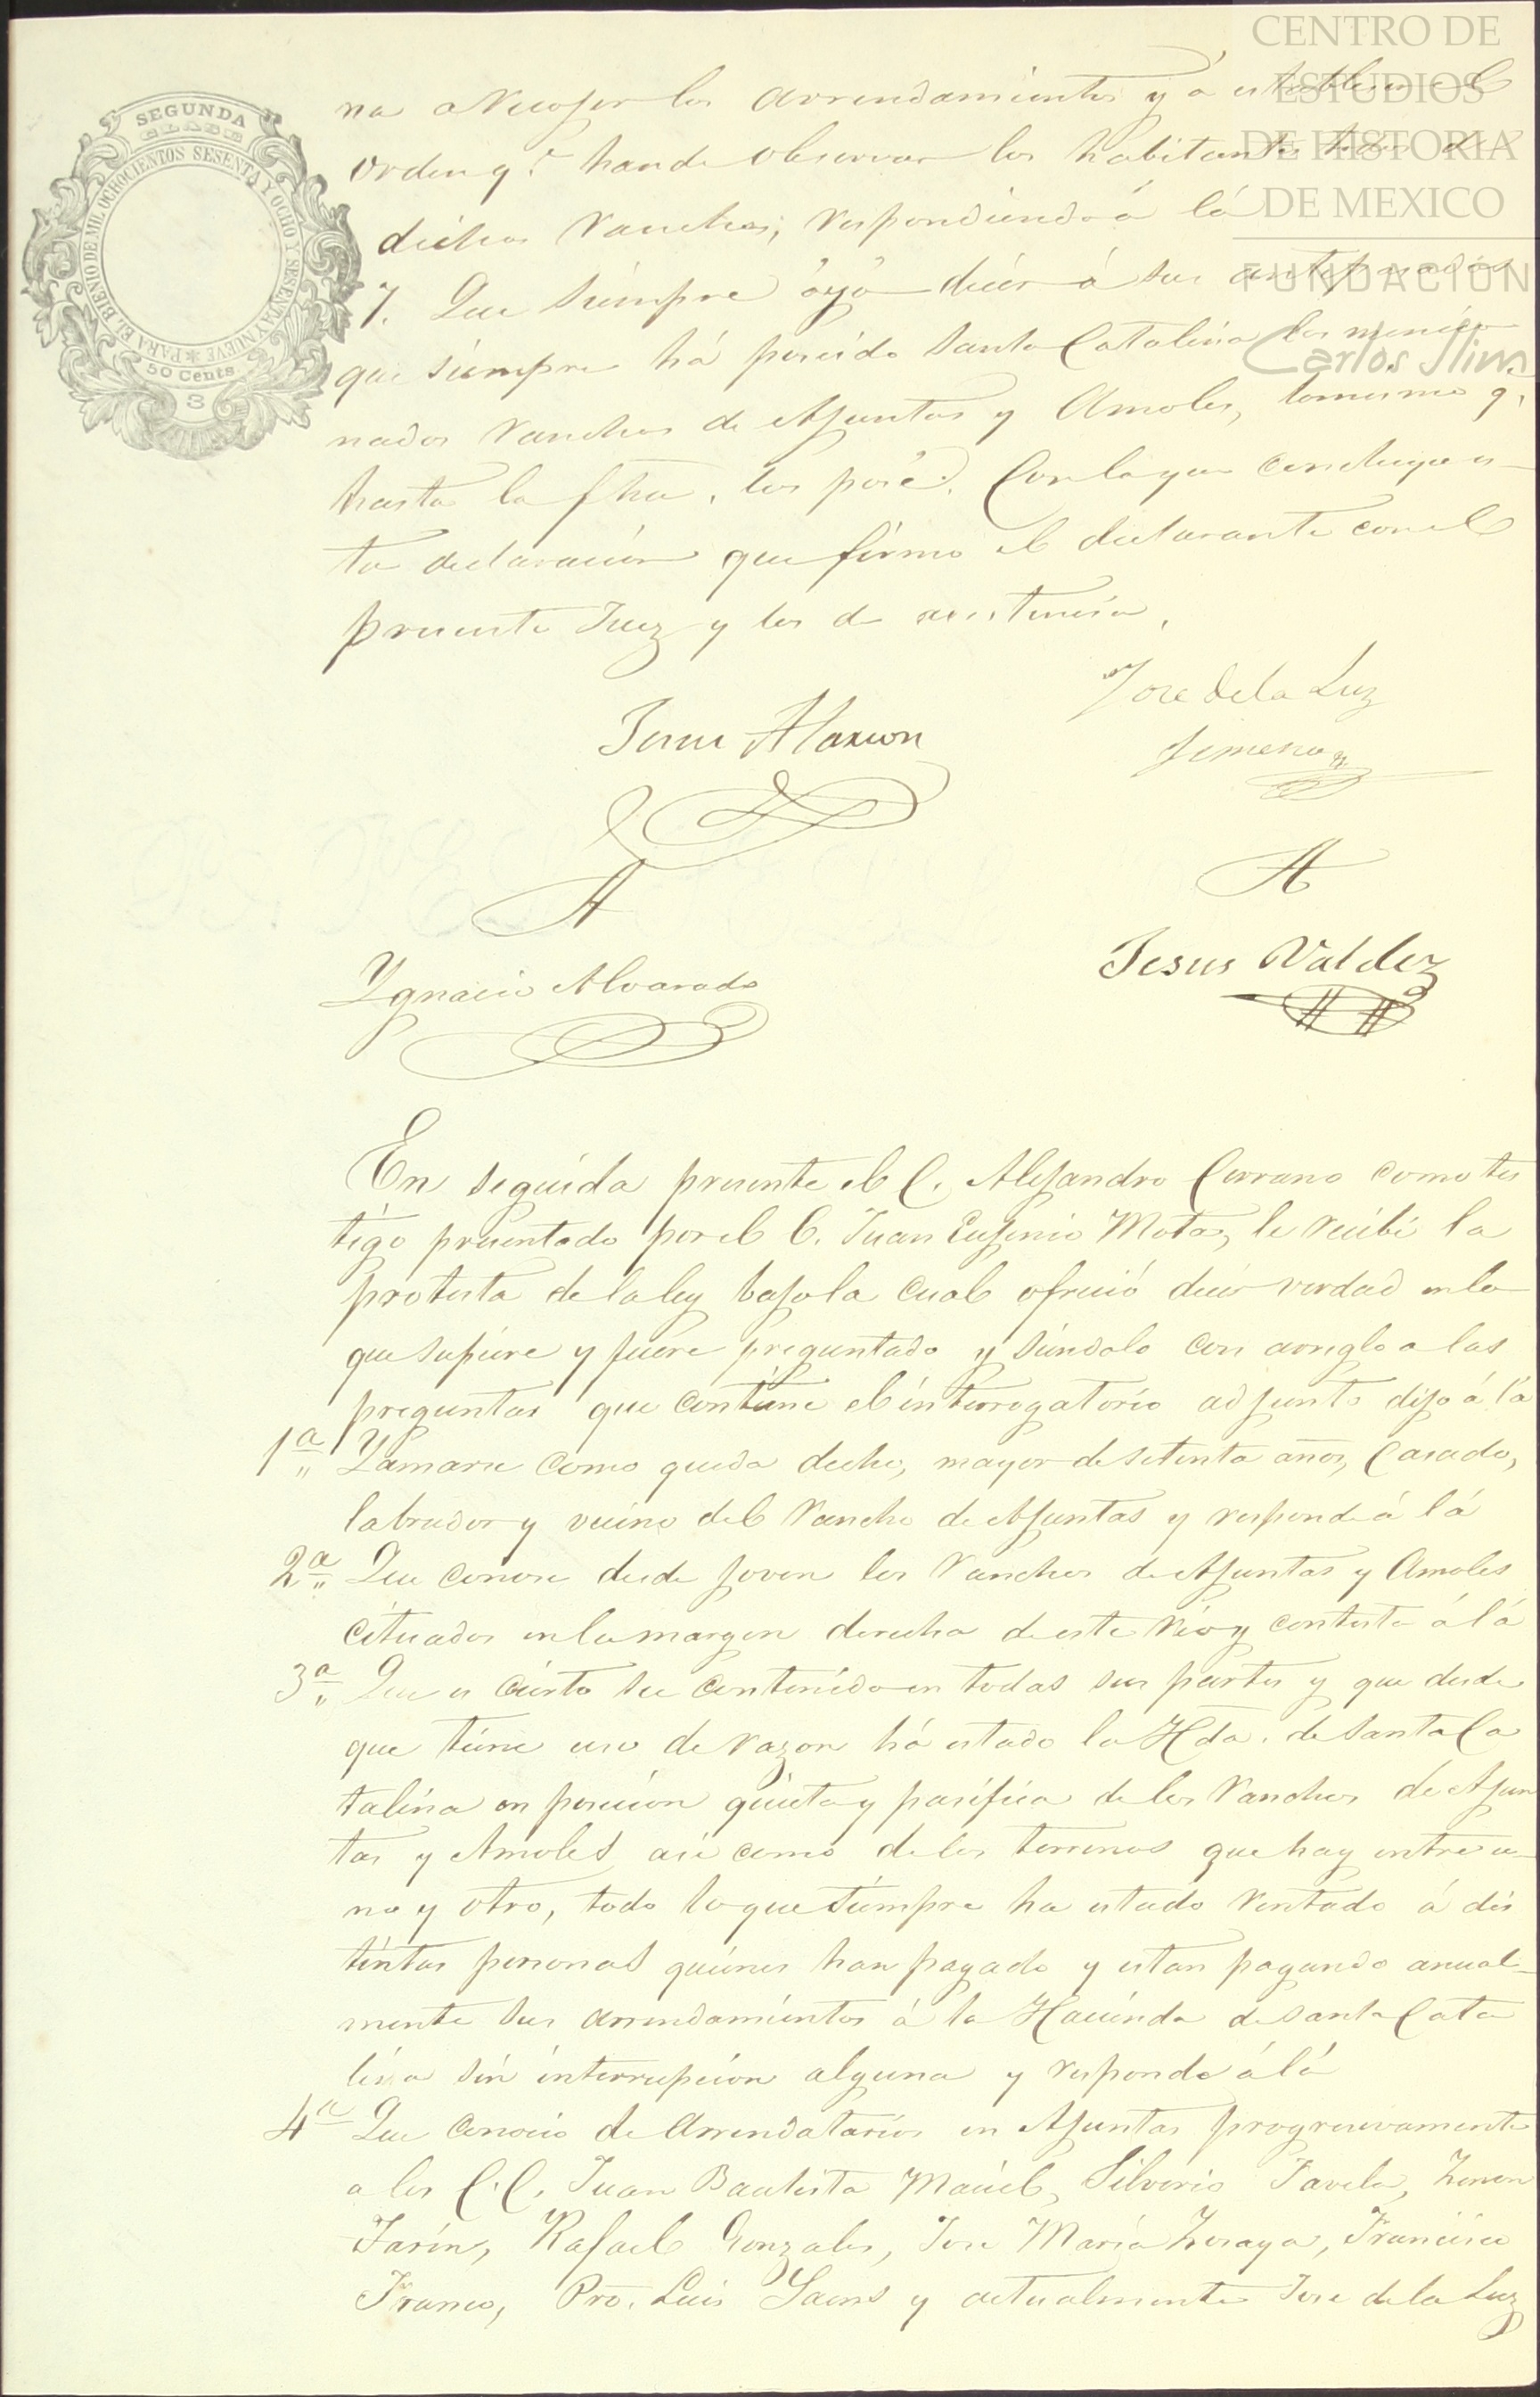 CENTRO DE
ESTUDIOS
DE HISTORIA
DE MEXICO
FUNDACIÓN
Carlos Slim
SEGUNDA
CLASE
PARA EL BIENIO DE MIL OCHOCIENTOS SESENTA Y OCHO Y SESENTA Y NUEVE
50 Cents.
3
na a recojer los arrendamientos y á establecer el
orden q.e han de observar los habitantes de
dichos ranchos; respondiendo á lá
7. Que siempre óyó decir á sus antepasados
que siempre há poseido Santa Catalina los mencio
nados ranchos de Ajuntas y Amoles, lo mismo q.
hasta la fha. los posé. Con lo que concluye es
ta declaración que firmó el declarante con el
presente Juez y los de asistencia.
Jesus Alarcon
Jose de la Luz
Jimenez
A
A
Ygnacio Alvarado
Jesus Valdez
En seguida presente el C. Alejandro Serrano como tes
tigo presentado por el C. Juan Eujenio Mota, le recibí la
protesta de la ley bajo la cual ofreció decir verdad en lo
que supiere y fuere preguntado y siendolo con arreglo a las
preguntas que contiene el interrogatorio adjunto dijo á lá
1a Llamarse como queda decho, mayor de setenta años, Casado,
labrador y vecino del Rancho de Ajuntas y responde á lá
2a Que conose desde joven los Ranchos de Ajuntas y Amoles
cituados en la margen derecha de este Rio y contesta á lá
3a Que es cierto su contenido en todas sus partes y que desde
que tiene uso de razon há estado la Hda. de Santa Ca
talina en posecion quieta y pasifica de los Ranchos de Ajun
tas y Amoles asi como de los terrenos que hay entre u-
no y otro, todo lo que siempre ha estado rentado á dis
tintas personas quienes han pagado y estan pagando anual-
mente sus arrendamientos á la Hacienda de Santa Cata
lina sin interrupcion alguna y responde á lá
4a Que conocio de Arrendatarios en Ajuntas progresivamente
a los C.C. Juan Bautista Maciel, Silverio Favela, Zenon
Farin, Rafael Gonzales, Jose Maria Zesaya, Francisco
Franco, Pro. Luis Saens y actualmente Jose de la Luz